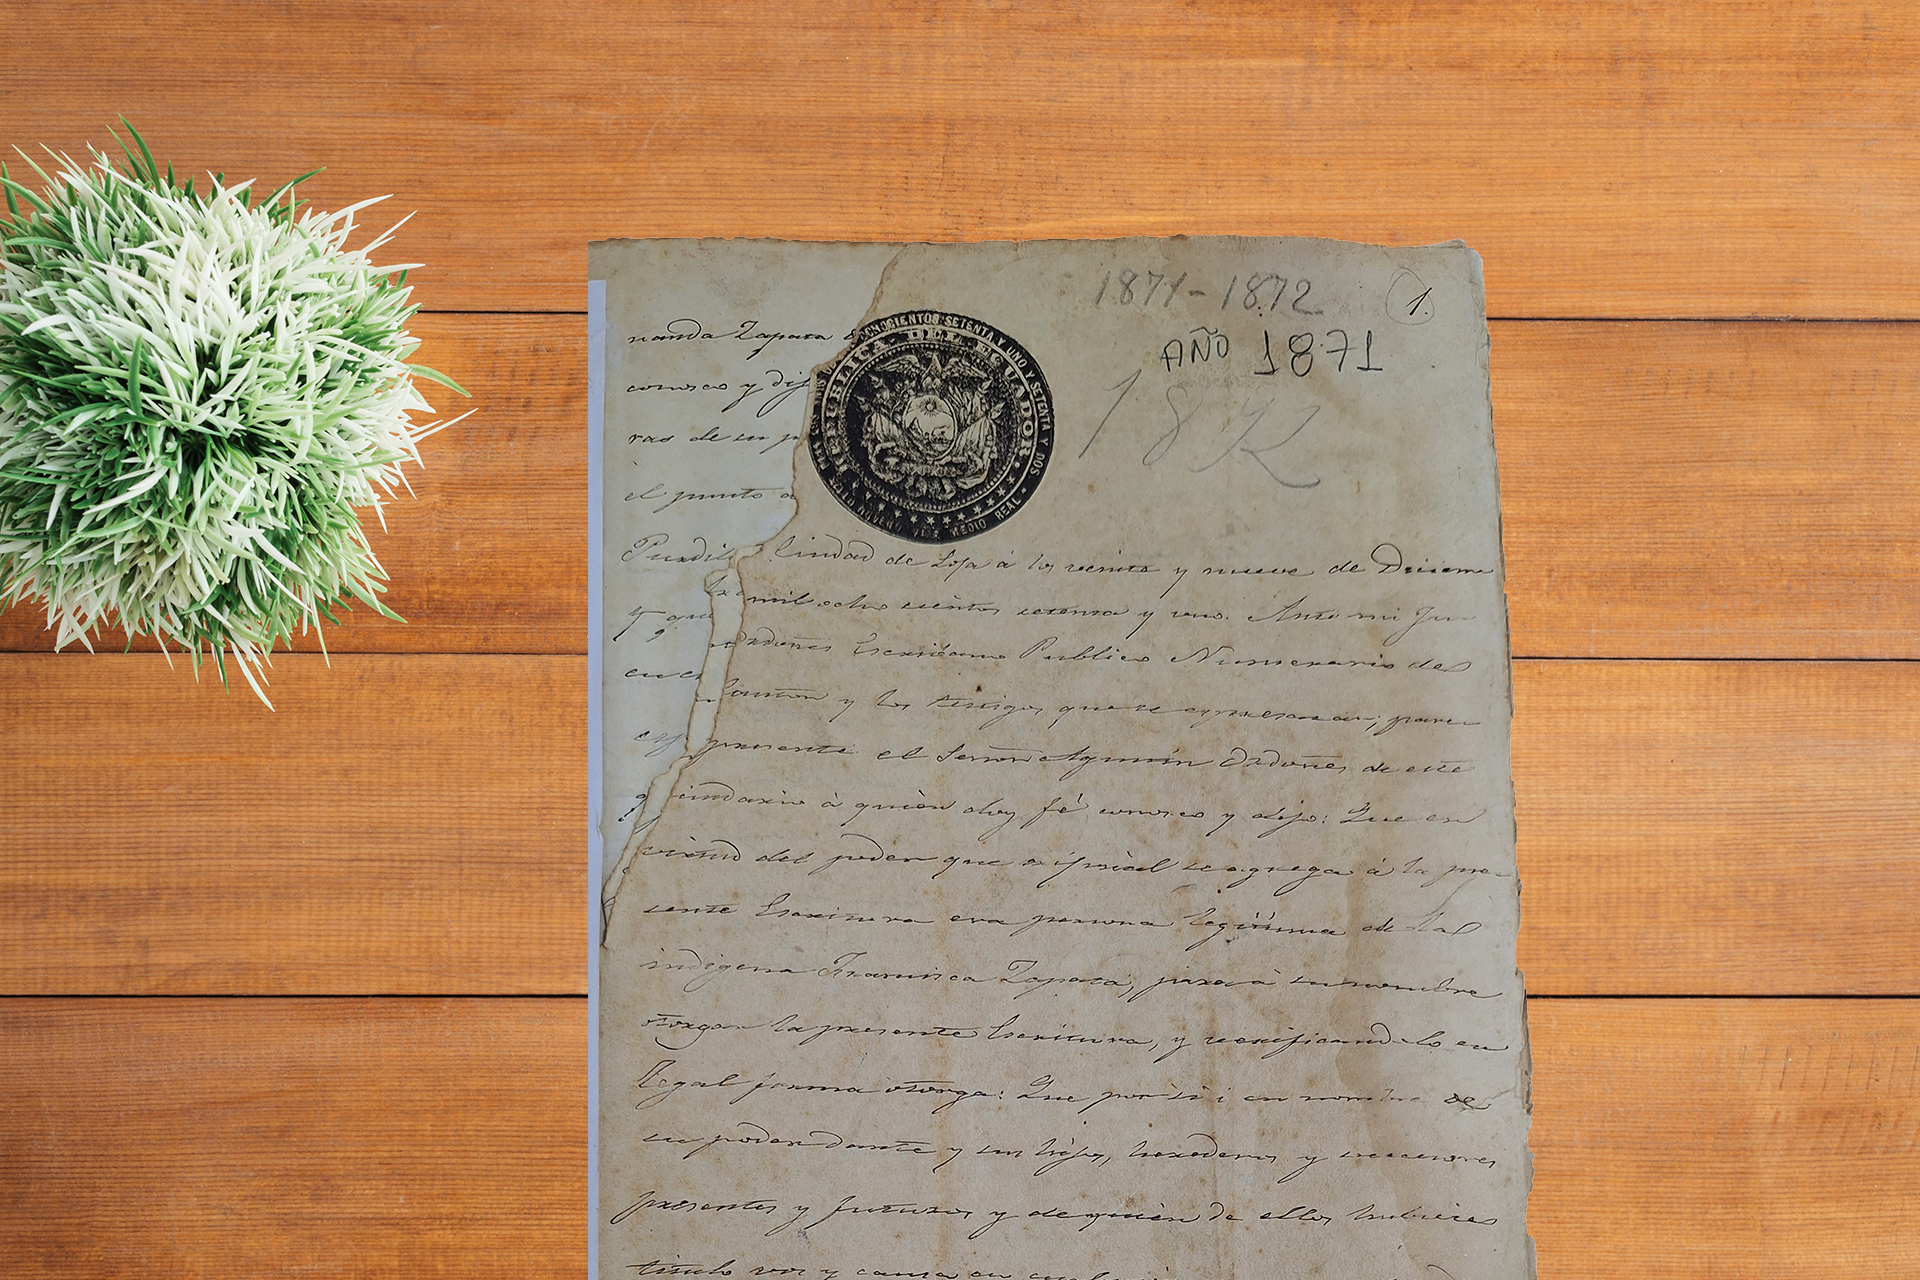 1871-1872
1.
AÑO 1871
187
OCHOCIENTOS SETENTA Y UNO Y SETENTA Y DOS
REPUBLICA DEL ECUADOR
SELLO NOVENO VALE MEDIO REAL
nanda Zapata
conosco y dij
ras de su p
el punto a
y que
Ciudad de Loja á los veinte y nueve de Diciem
bre mil ocho cientos setenta y uno. Ante mi
Ordoñes Escribano Publico Numerario del
Canton y los testigos que se expresaran, pare
presente el Señor Agustin Ordoñes de este
vecindario á quien doy fé conosco y dijo: Que en
virtud del poder que original se agrega á la pre-
sente Escritura era persona legitima de la
indigena Francisca Zapata, para á su nombre
otorgar la presente Escritura, y verificandolo en
legal forma otorga: Que por si i en nombre de
su poderdante y sus hijos, herederos y sucesores
presentes y futuros y de quien de ellos hubiere
titulo vos y causa en